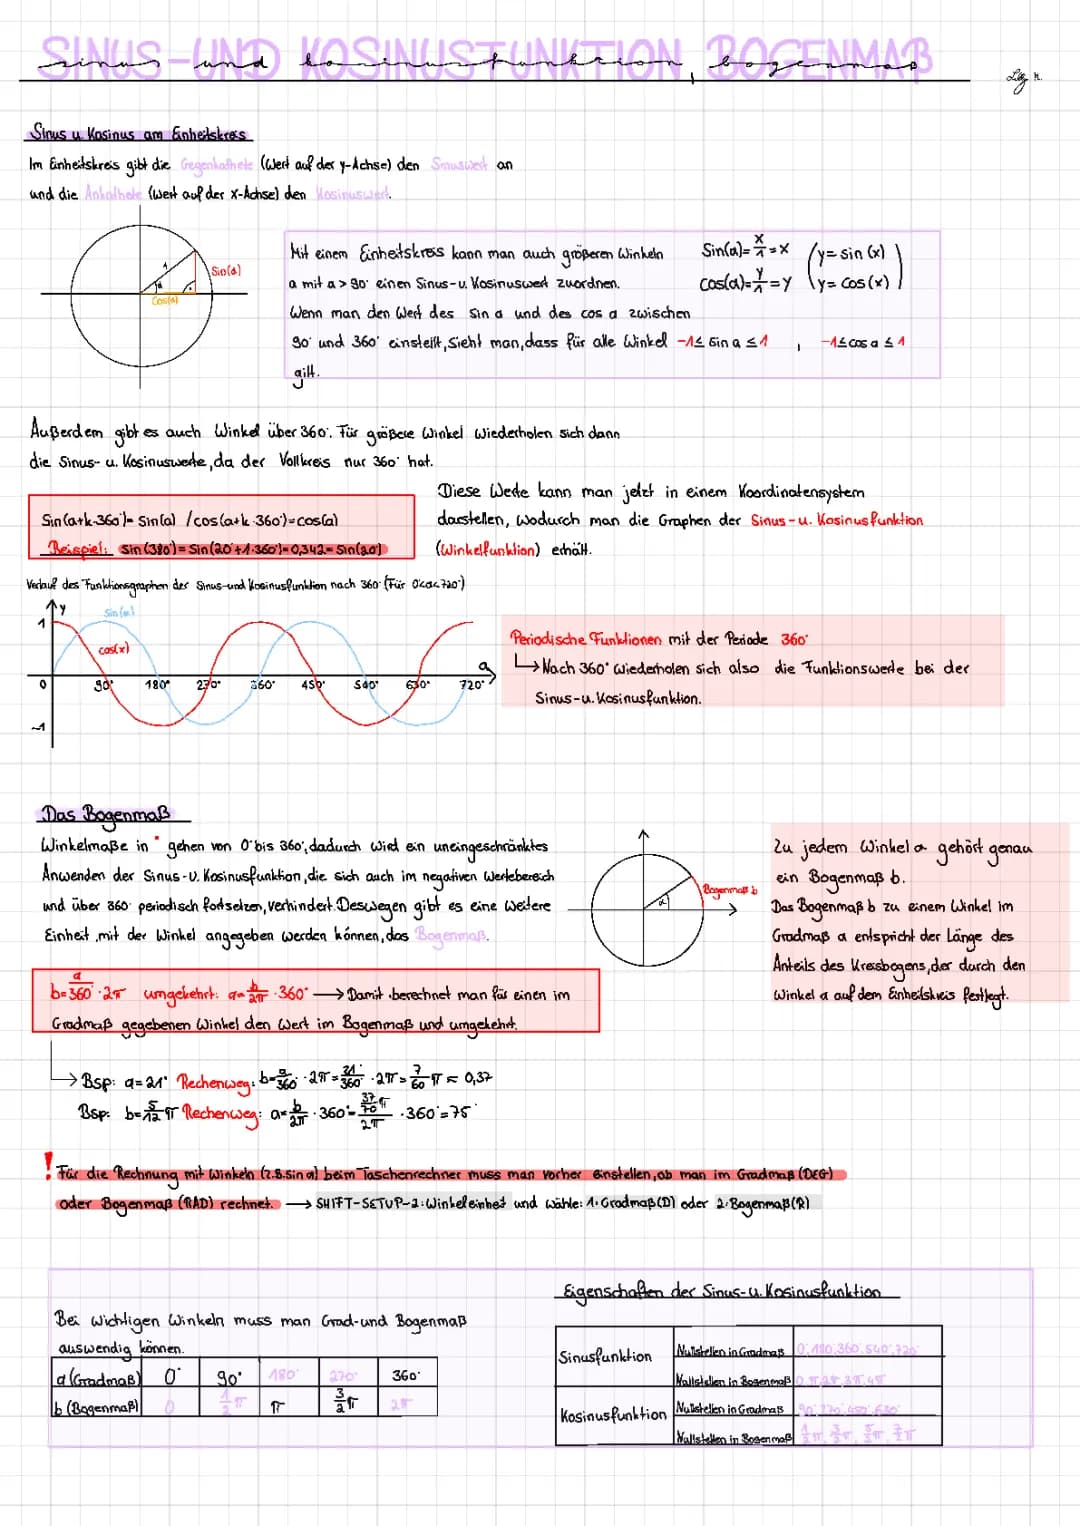 SINUS-UND KOSINUSFUNKTION, BOGENMAß
sinus und kosinusfunktion, bogenmas
Sinus u. Kosinus am Einheitskreis
Im Einheitskreis gibt die Gegenkathete (Wert auf der y-Achse) den Sinuswert an
und die Ankathete (Wert auf der x-Achse) den Kosinuswert.
1
α
Sin(α)
Cos(α)
Mit einem Einheitskreis kann man auch größeren Winkeln
a mit a > 90° einen Sinus-u. Kosinuswert zuordnen.
Wenn man den Wert des Sin a und des cos a zwischen
90° und 360° einstellt, Sieht man, dass für alle Winkel -1≤ Sin a ≤1 , -1≤cos a ≤ 1
gilt.
Sin(a)=x/1=x (y= sin (x))
Cos(a)=y/1=y (y= Cos(x))
Außerdem gibt es auch Winkel über 360°. Für größere Winkel Wiederholen sich dann
die Sinus- u. Kosinuswerte, da der Vollkreis nur 360° hat.
Sin(a+k·360°)= Sin(a) /cos(a+k·360°)=cos(a)
Beispiel: Sin(380°)= Sin(20°+1·360°)=0,342= Sin(20°)
Diese Werte kann man jetzt in einem Koordinatensystem
darstellen, wodurch man die Graphen der Sinus-u. Kosinusfunktion
(Winkelfunktion) erhält.
Verlauf des Funktionsgraphen der Sinus-und Kosinusfunktion nach 360° (Für 0°<a<720°)
y
1
Sin(x)
cos(x)
a
0 90° 180° 270° 360° 450° 540° 630° 720°
-1
Periodische Funktionen mit der Periode 360°
→Nach 360° wiederholen sich also die Funktionswerte bei der
Sinus-u. Kosinusfunktion.
Das Bogenmaß
Winkelmaße in ° gehen von 0° bis 360°, dadurch wird ein uneingeschränktes
Anwenden der Sinus-u. Kosinusfunktion, die sich auch im negativen Wertebereich
und über 360° periodisch fortsetzen, verhindert. Deswegen gibt es eine weitere
Einheit, mit der Winkel angegeben werden können, das Bogenmaß.
α
Bogenmaß b
Zu jedem Winkel a gehört genau
ein Bogenmaß b.
Das Bogenmaß b zu einem Winkel im
Gradmaß a entspricht der Länge des
Anteils des Kreisbogens, der durch den
Winkel a auf dem Einheitskreis festlegt.
b=a/360°·2π umgekehrt: a=b/2π·360° → Damit berechnet man für einen im
Gradmaß gegebenen Winkel den Wert im Bogenmaß und umgekehrt.
→ Bsp: a=21° Rechenweg: b=a/360°·2π=21°/360°·2π=7/60 π ≈ 0,37
Bsp: b=5/12 π Rechenweg: a=b/2π·360°= ·360°=75°
! Für die Rechnung mit Winkeln (z.B. sin a) beim Taschenrechner muss man vorher einstellen, ob man im Gradmaß (DEG)
oder Bogenmaß (RAD) rechnet. → SHIFT-SETUP-2:Winkeleinheit und wähle: 1:Gradmaß(D) oder 2:Bogenmaß(R)
Bei wichtigen Winkeln muss man Grad-und Bogenmaß
auswendig können.
a (Gradmaß) 0° 90° 180° 270° 360°
b (Bogenmaß) 0 1/2 π π 3/2 π 2π
Eigenschaften der Sinus-u. Kosinusfunktion
Sinusfunktion
Nullstellen in Gradmaß 0°,180°,360°,540°,720°
Nullstellen in Bogenmaß 0,π,2π,3π,4π
Kosinusfunktion
Nullstellen in Gradmaß 90°,270°,450°,630°
Nullstellen in Bogenmaß 1/2 π, 3/2 π, 5/2 π, 7/2 π